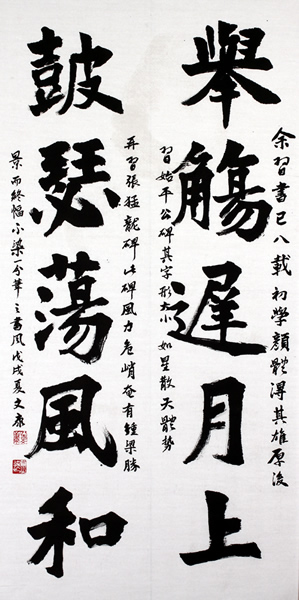 余習書已八載初學顏體得其雄厚後
舉觴遲月上
習始平公碑其字形大小如星散天體勢
再習張猛龍碑此碑風力危峭奄有鍾梁勝
皷瑟蕩風和
景而終一分筆之書風戊戌夏文康